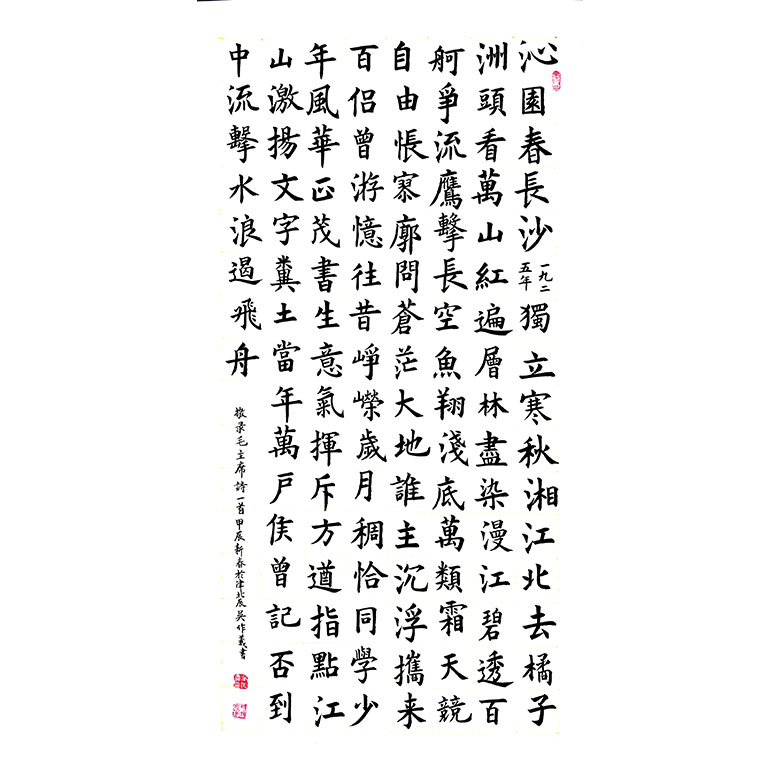 沁園春長沙一九二五年獨立寒秋湘江北去橘子
洲頭看萬山紅遍層林盡染漫江碧透百
舸爭流鷹擊長空魚翔淺底萬類霜天競
自由悵寥廓問蒼茫大地誰主沉浮攜来
百侶曾游憶往昔崢嶸歲月稠恰同學少
年風華正茂書生意氣揮斥方遒指點江
山激揚文字糞土當年萬戶侯曾記否到
中流擊水浪遏飛舟
敬录毛主席詩一首甲辰新春於津北辰吴作義書